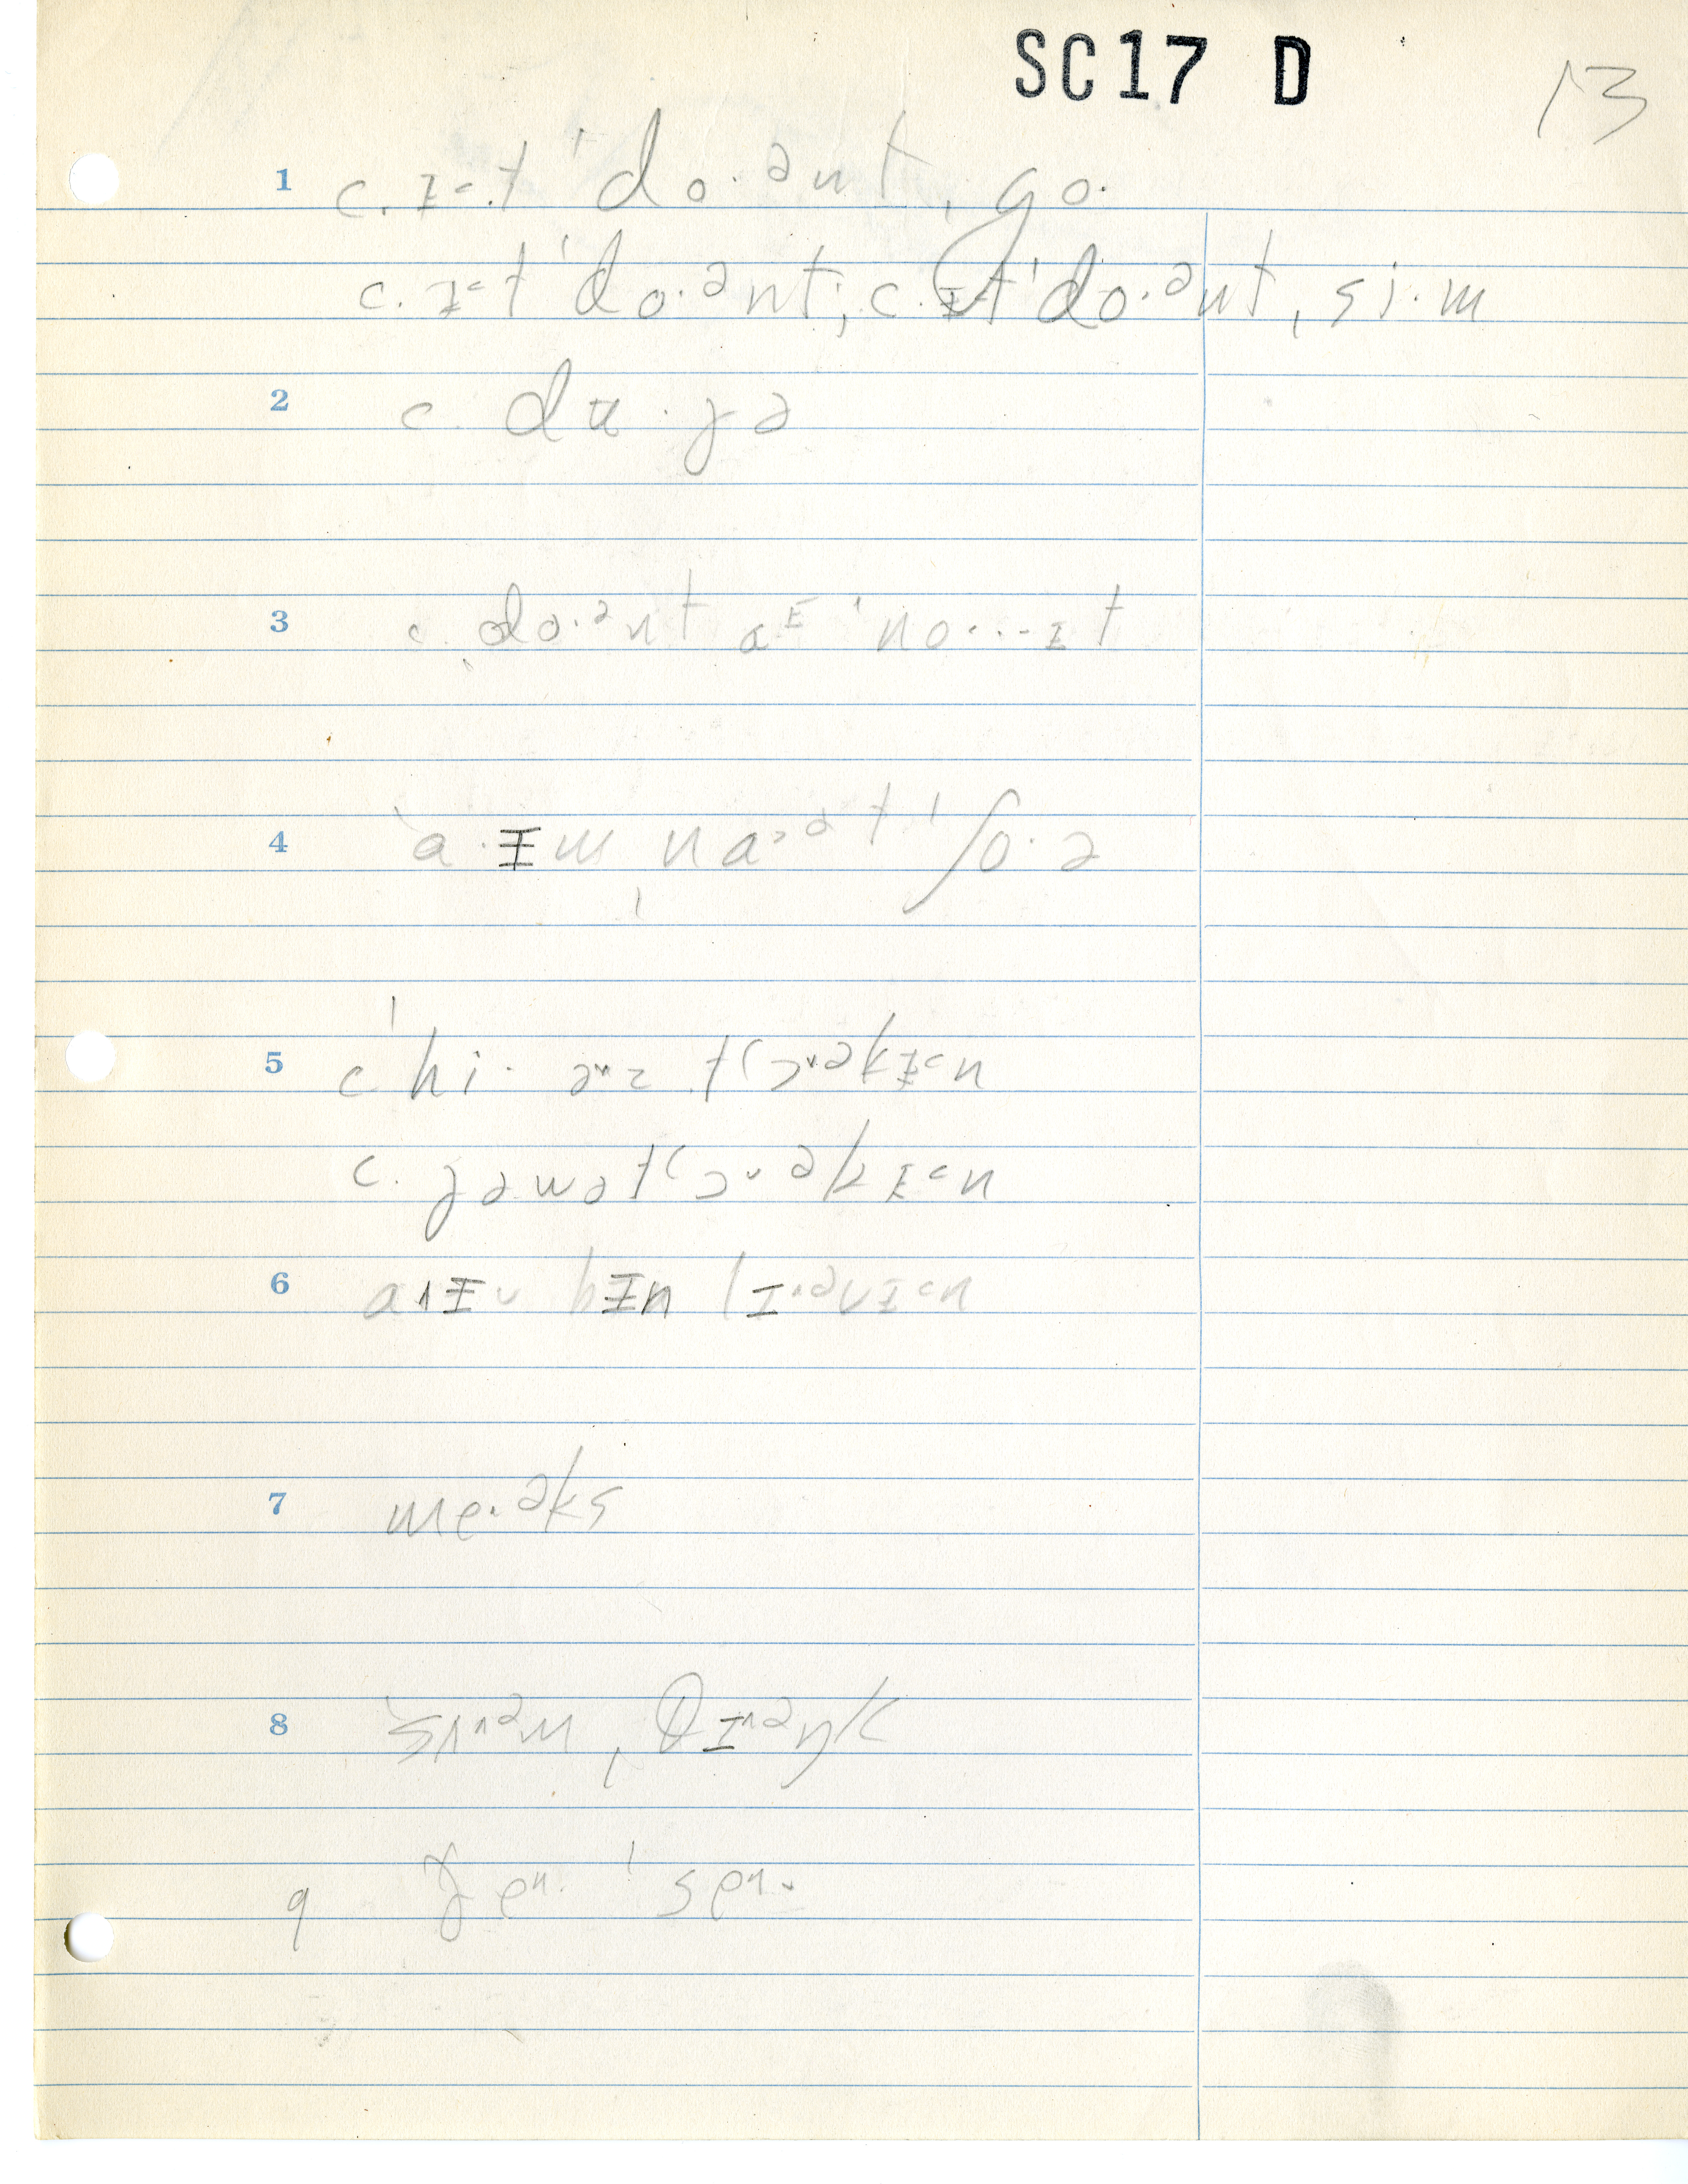 SC17 D 13
1 c. ɪ˂t ˈdo·ənt, go·
c. ɪ˂t ˈdo·ənt; c. ɪ˂t ˈdo·ənt, si·m
2 c. dʉ·jə
3 c. do·ənt aᴱ ˈno··-ɪt
4 a·ɪm na˃ət ˈʃo·ə
5 c hi· ə˄z tʃɔ˅əkɪ˂n
c. jəwətʃɔ˅əkɪ˂n
6 a˄ɪv bɪn lɪ˄əvɪ˂n
7 me·əks
8 sʌ˄əm, θɪ˄əŋk
9 ðe˄· ˈse˄·